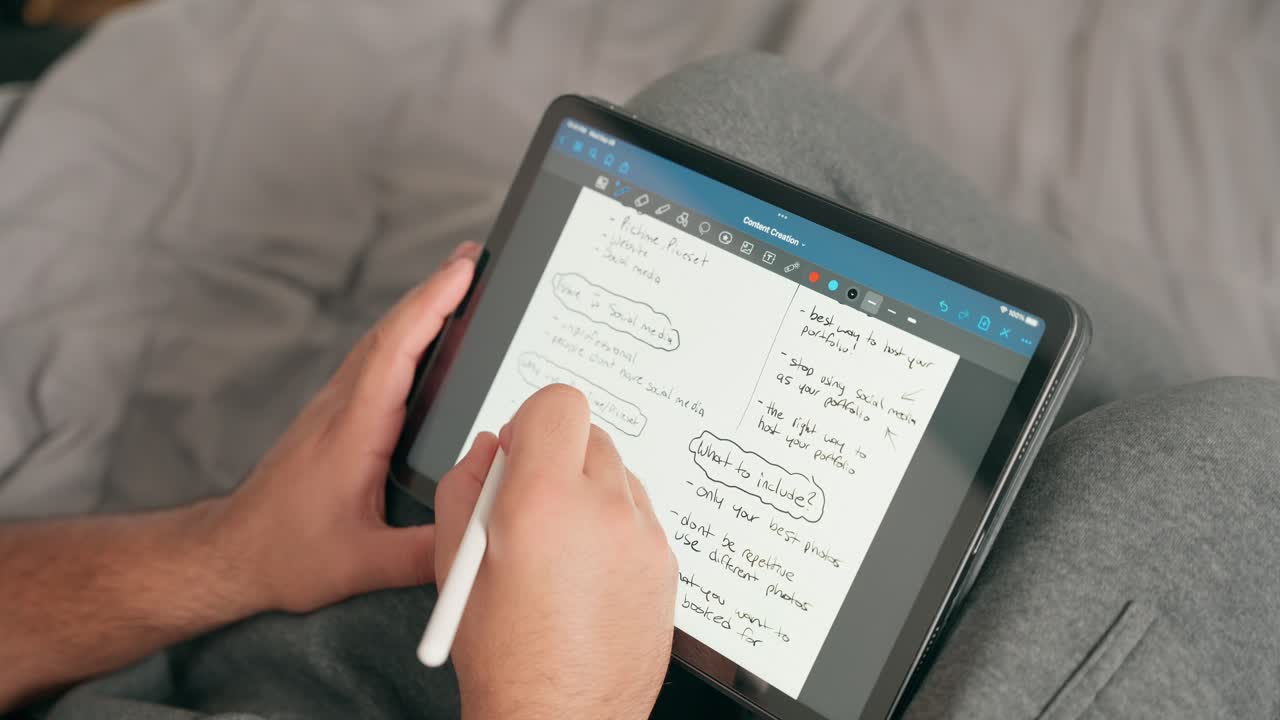 Content Creation
100%
- Pictime, Pixeset
- Website
- Social media
Social media
- unprofessional
- people dont have social media
- best way to host your
portfolio
- stop using social media
as your portfolio
- the right way to
host your portfolio
What to include?
- only your best photos
- dont be repetitive
use different photos
you want to
booked for